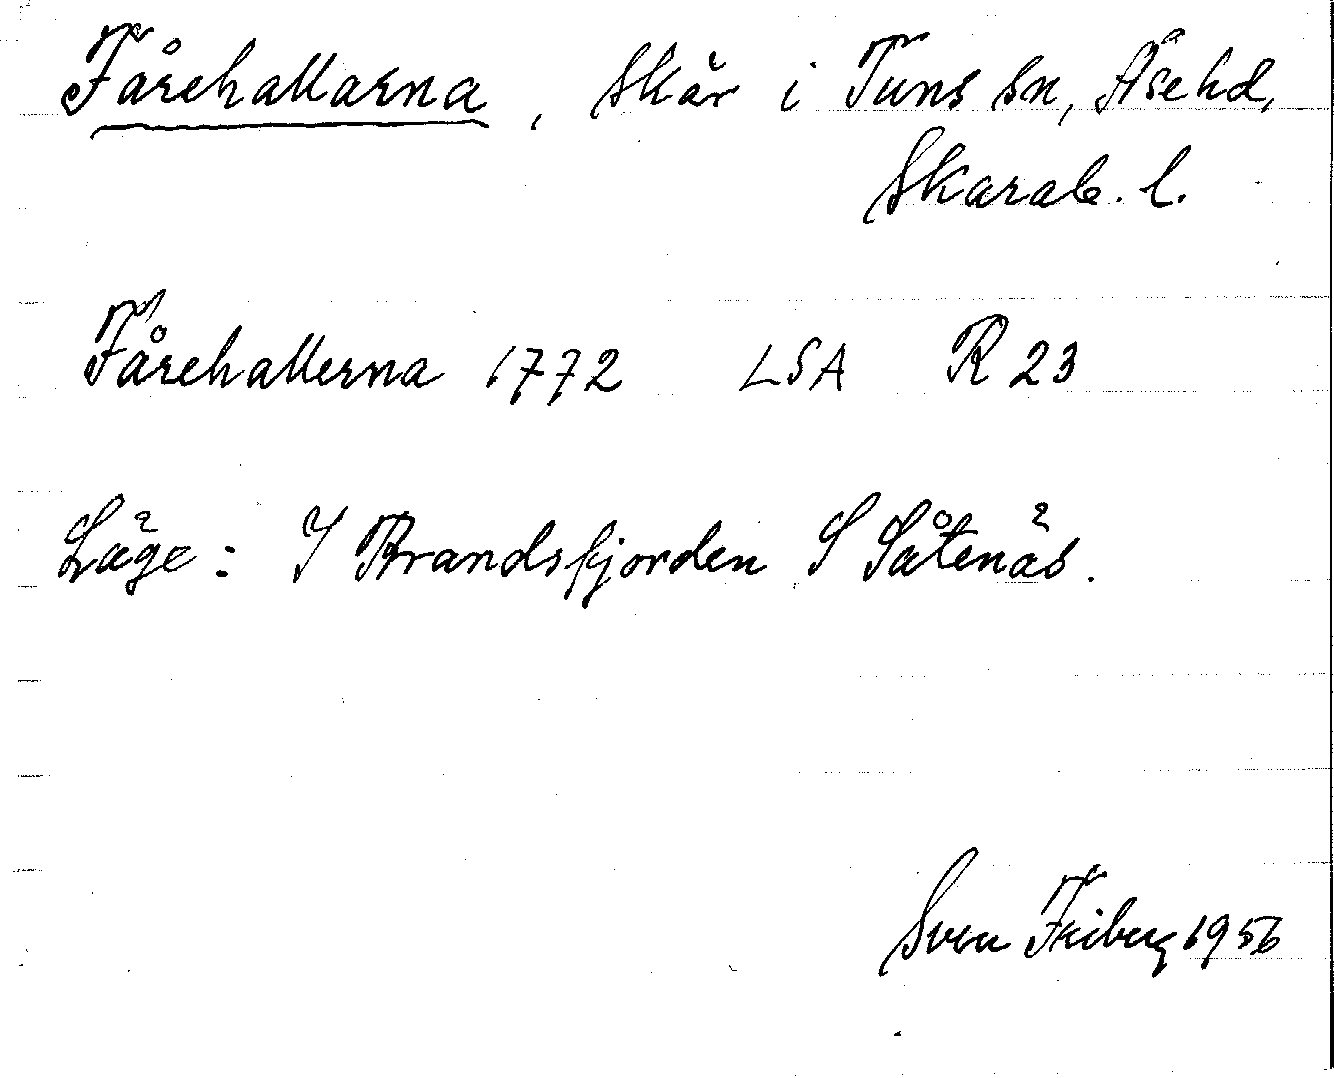 Fårehallarna, skär i Tuns sn, Åse hd,
Skarab. l.
Fårehallerna 1772 LSA R 23
Läge: I Brandsfjorden S Såtenäs.
Sven Friberg 1956